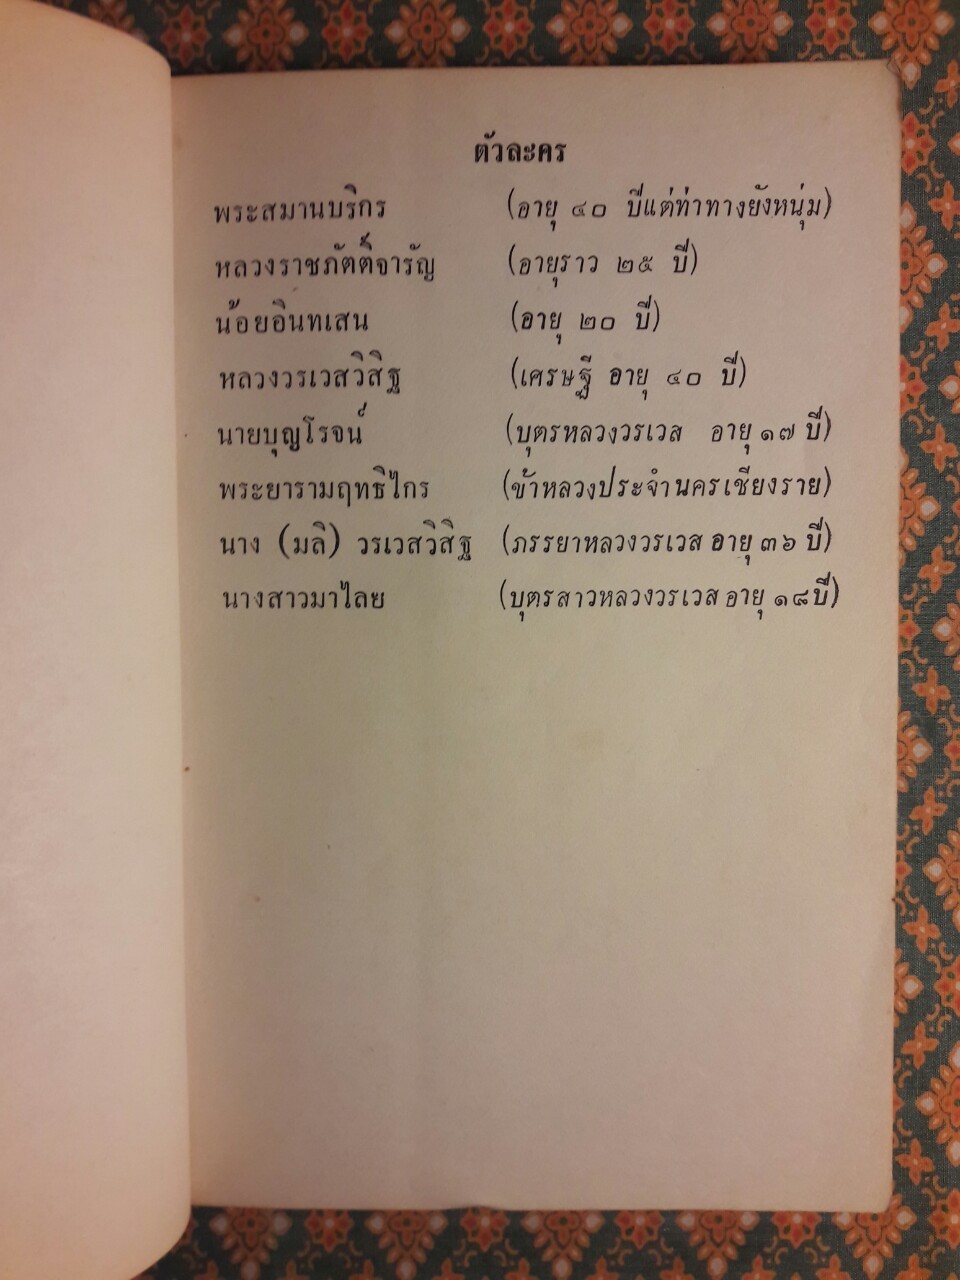 ตัวละคร
พระสมานบริกร (อายุ ๔๐ ปีแต่ท่าทางยังหนุ่ม)
หลวงราชภัตติ์จารัญ (อายุราว ๒๕ ปี)
น้อยอินทเสน (อายุ ๒๐ ปี)
หลวงวรเวสวิสิฐ (เศรษฐี อายุ ๔๐ ปี)
นายบุญโรจน์ (บุตรหลวงวรเวส อายุ ๑๗ ปี)
พระยารามฤทธิไกร (ข้าหลวงประจำนครเชียงราย)
นาง (มลิ) วรเวสวิสิฐ (ภรรยาหลวงวรเวส อายุ ๓๖ ปี)
นางสาวมาไลย (บุตรสาวหลวงวรเวส อายุ ๑๘ ปี)